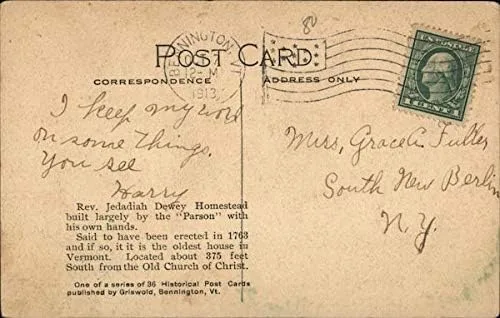 80
BENNINGTON, VT.
12-M
1913
POST CARD
CORRESPONDENCE
ADDRESS ONLY
U.S. POSTAGE
1 CENT 1
I keep my word
on some things.
You see
Harry
Miss, Grace A Fuller
South New Berlin
N.Y.
Rev. Jedadiah Dewey Homestead
built largely by the "Parson" with
his own hands.
Said to have been erected in 1763
and if so, it is the oldest house in
Vermont. Located about 375 feet
South from the Old Church of Christ.
One of a series of 36 Historical Post Cards
published by Griswold, Bennington, Vt.